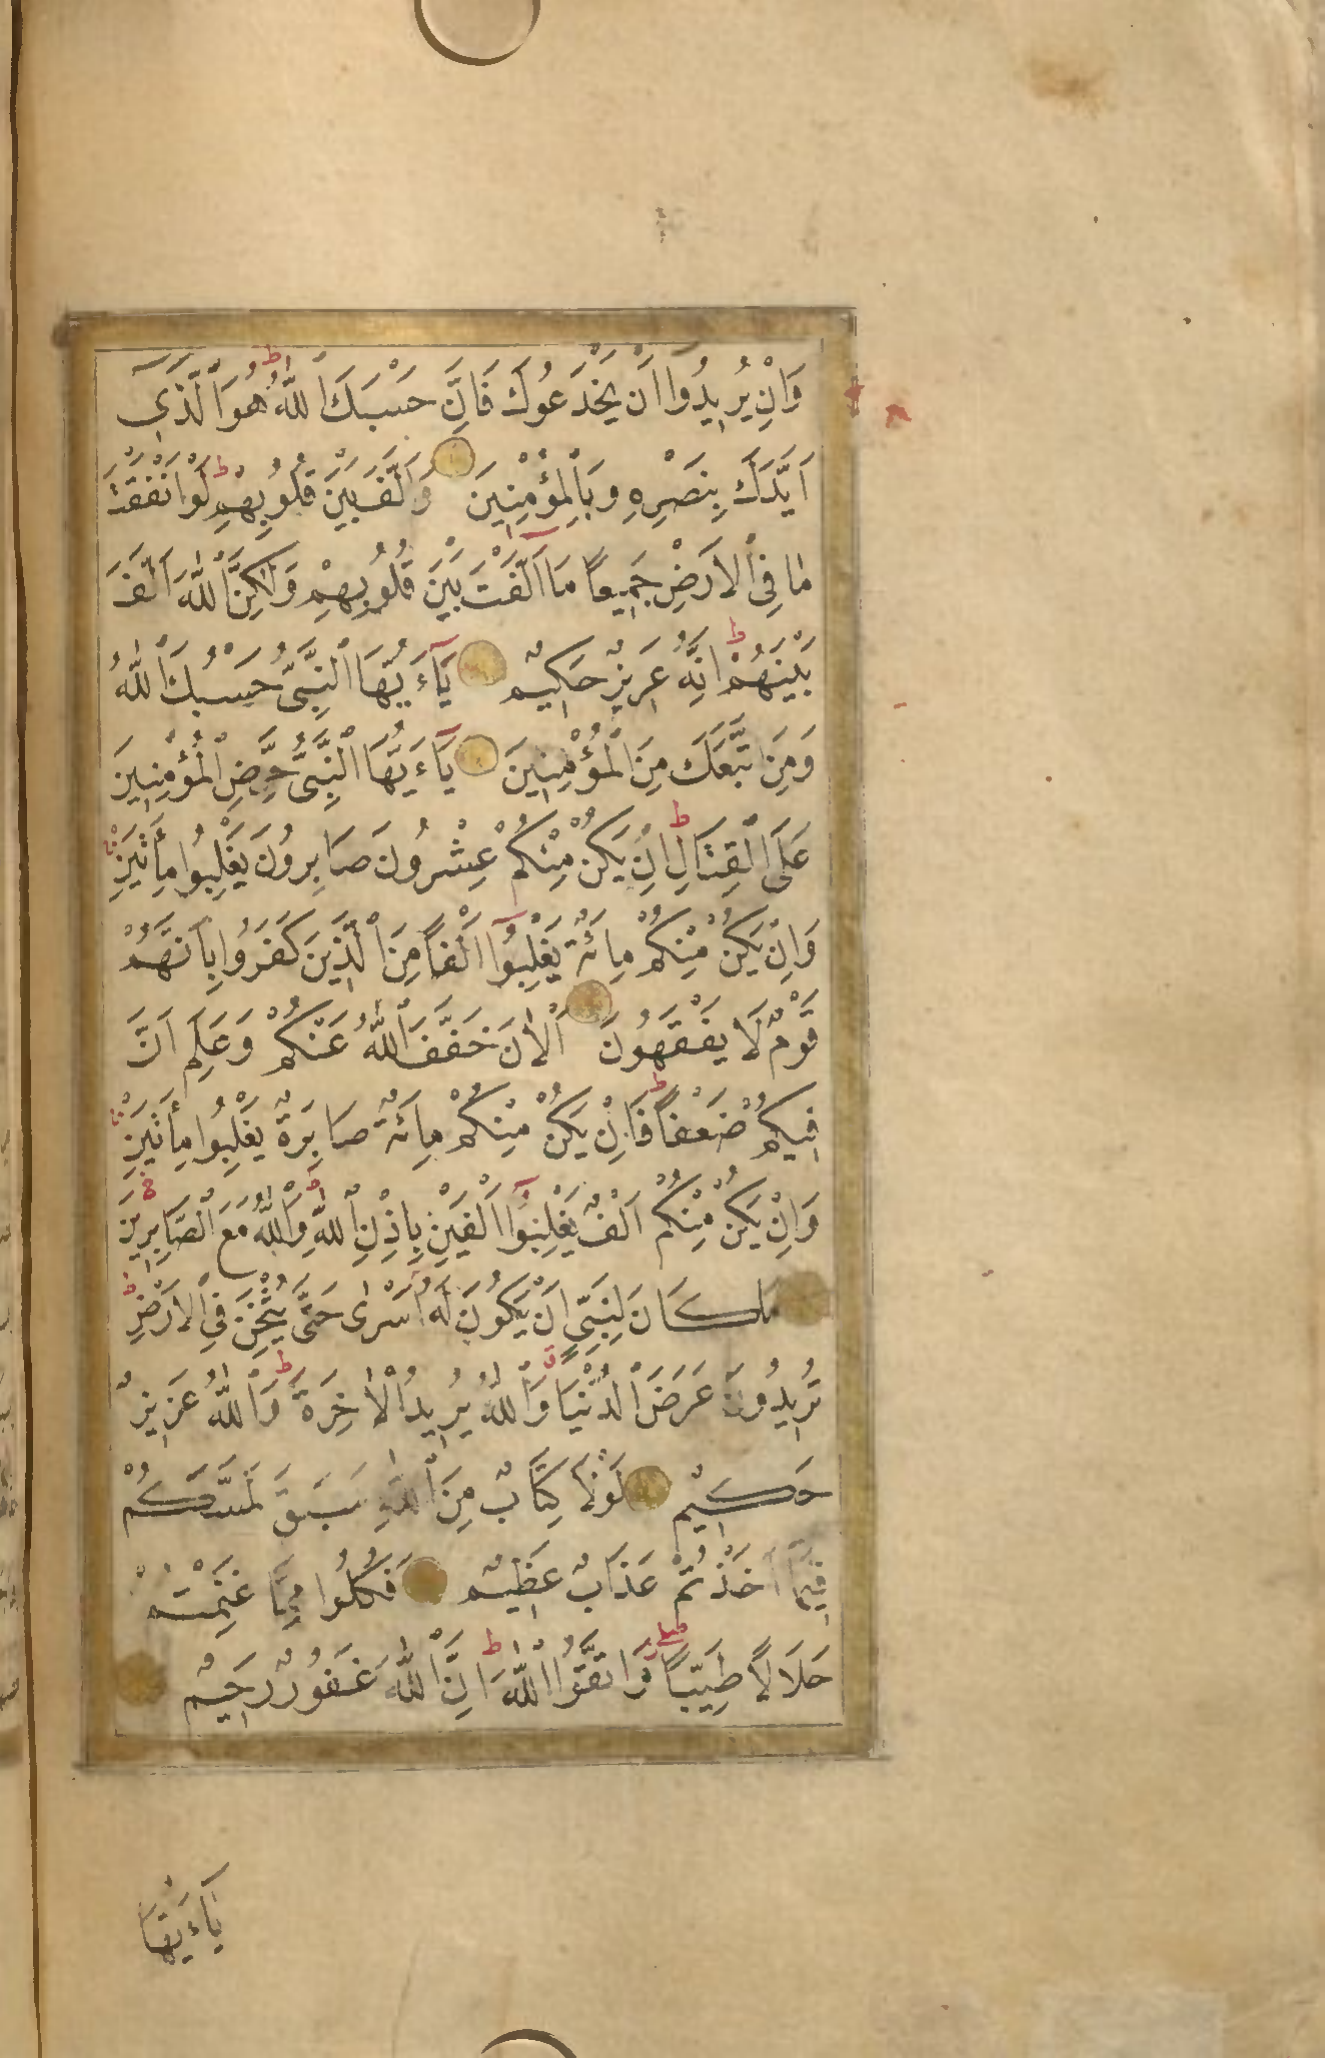 وَاِنْ يُرِيدُوا اَنْ يَخْدَعُوكَ فَاِنَّ حَسْبَكَ اللّٰهُ ط هُوَ الَّذِي
اَيَّدَكَ بِنَصْرِهِ وَبِالْمُؤْمِنِينَ وَاَلَّفَ بَيْنَ قُلُوبِهِمْ ط لَوْ اَنْفَقْتَ
مَا فِي الْاَرْضِ جَمِيعًا مَا اَلَّفْتَ بَيْنَ قُلُوبِهِمْ وَلٰكِنَّ اللّٰهَ اَلَّفَ
بَيْنَهُمْ ط اِنَّهُ عَزِيزٌ حَكِيمٌ يَآءَيُّهَا النَّبِيُّ حَسْبُكَ اللّٰهُ
وَمَنِ اتَّبَعَكَ مِنَ الْمُؤْمِنِينَ يَآءَيُّهَا النَّبِيُّ حَرِّضِ الْمُؤْمِنِينَ
عَلَى الْقِتَالِ ط اِنْ يَكُنْ مِنْكُمْ عِشْرُونَ صَابِرُونَ يَغْلِبُوا مِأَتَيْنِ
وَاِنْ يَكُنْ مِنْكُمْ مِائَةٌ يَغْلِبُوا اَلْفًا مِنَ الَّذِينَ كَفَرُوا بِاَنَّهُمْ
قَوْمٌ لَا يَفْقَهُونَ اَلْاٰنَ خَفَّفَ اللّٰهُ عَنْكُمْ وَعَلِمَ اَنَّ
فِيكُمْ ضَعْفًا ط فَاِنْ يَكُنْ مِنْكُمْ مِائَةٌ صَابِرَةٌ يَغْلِبُوا مِأَتَيْنِ
وَاِنْ يَكُنْ مِنْكُمْ اَلْفٌ يَغْلِبُوا اَلْفَيْنِ بِاِذْنِ اللّٰهِ وَاللّٰهُ مَعَ الصَّابِرِينَ
مَا كَانَ لِنَبِيٍّ اَنْ يَكُونَ لَهُ اَسْرٰى حَتَّى يُثْخِنَ فِي الْاَرْضِ ط
تُرِيدُونَ عَرَضَ الدُّنْيَا وَاللّٰهُ يُرِيدُ الْاٰخِرَةَ ط وَاللّٰهُ عَزِيزٌ
حَكِيمٌ لَوْلَا كِتَابٌ مِنَ اللّٰهِ سَبَقَ لَمَسَّكُمْ
فِيمَا اَخَذْتُمْ عَذَابٌ عَظِيمٌ فَكُلُوا مِمَّا غَنِمْتُمْ
حَلَالًا طَيِّبًا وَاتَّقُوا اللّٰهَ ط اِنَّ اللّٰهَ غَفُورٌ رَحِيمٌ
يَآءَيُّهَا